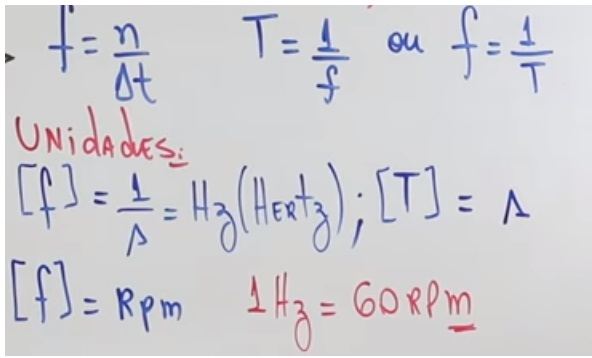 f = n/Δt T = 1/f ou f = 1/T
UNidAdES:
[f] = 1/s = Hz (HERtz); [T] = s
[f] = Rpm 1 Hz = 60 RPm